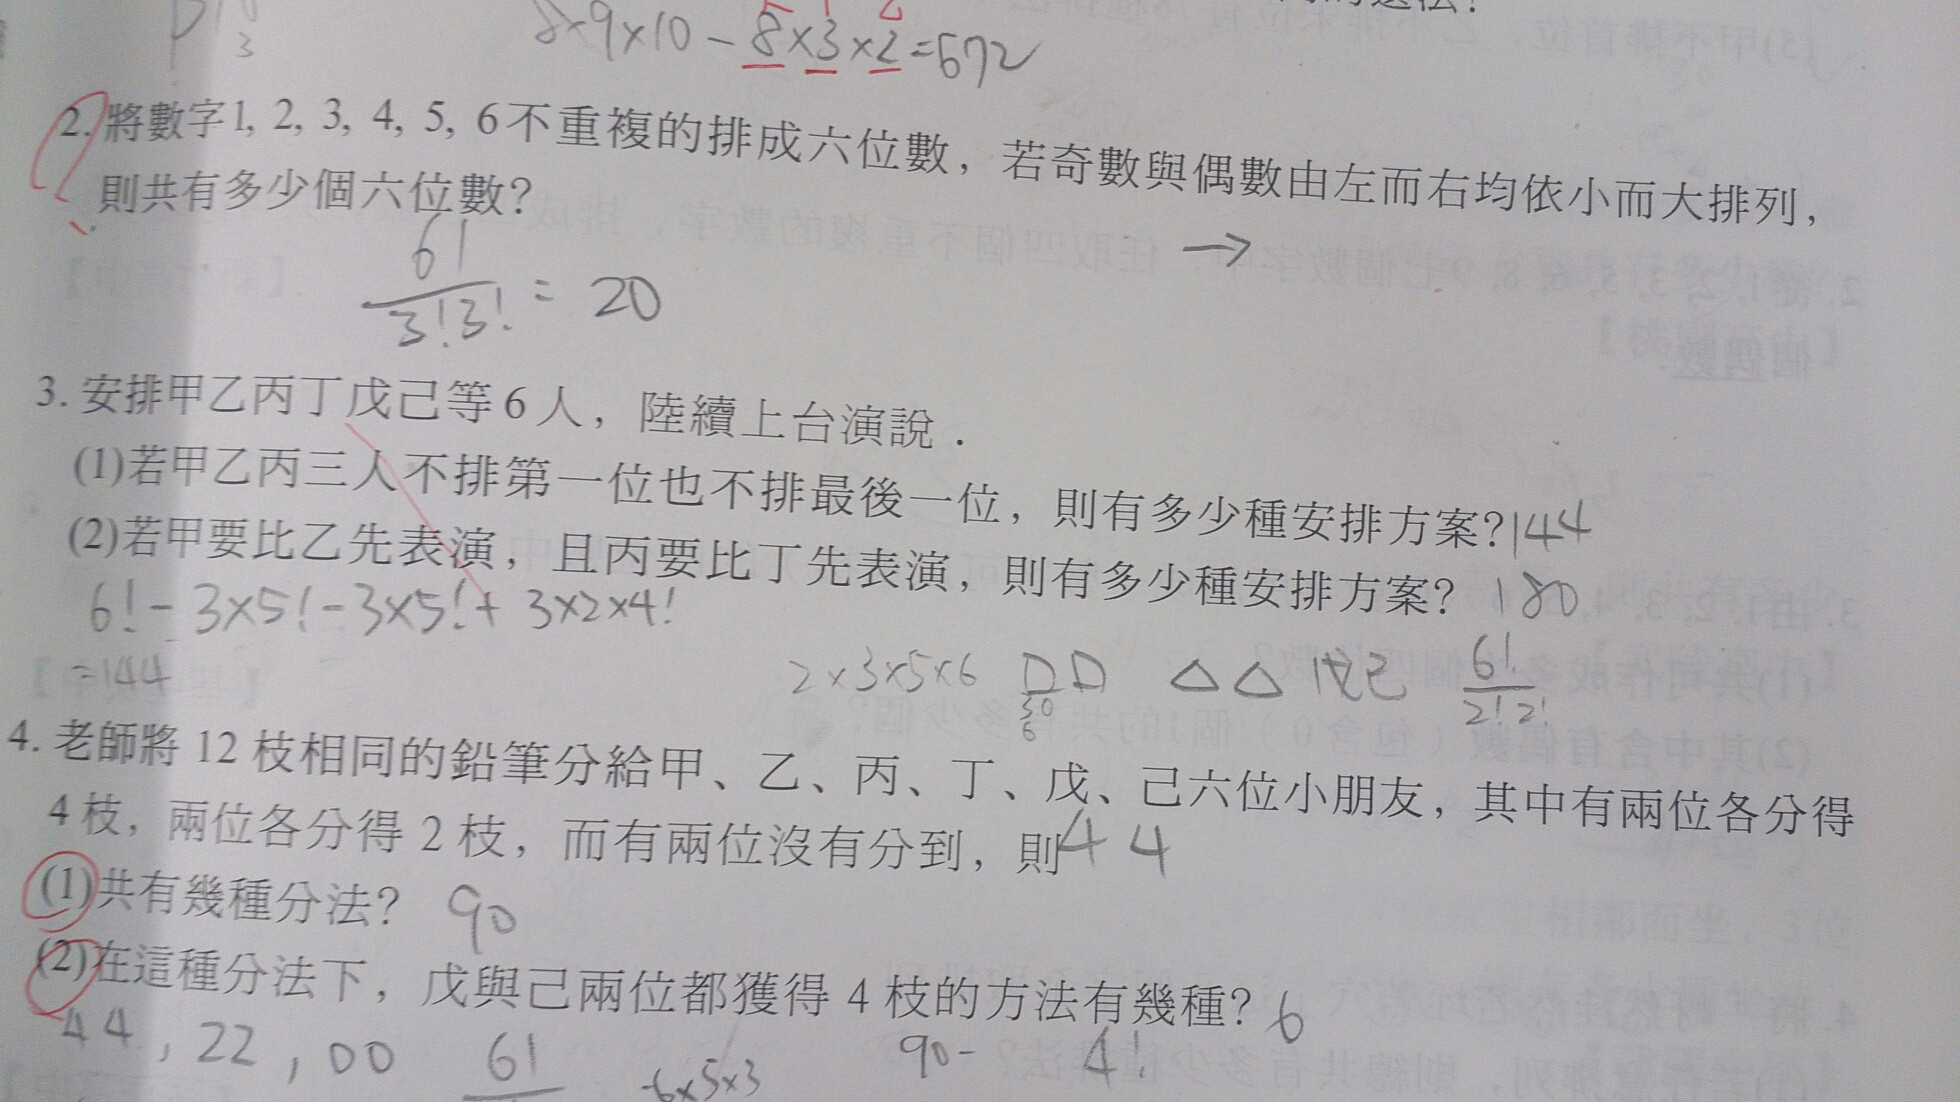 8×9×10-8×3×2=672
2. 將數字1, 2, 3, 4, 5, 6不重複的排成六位數，若奇數與偶數由左而右均依小而大排列，
則共有多少個六位數?
6!/3!3! = 20 →
3. 安排甲乙丙丁戊己等6人，陸續上台演說．
(1)若甲乙丙三人不排第一位也不排最後一位，則有多少種安排方案? 144
(2)若甲要比乙先表演，且丙要比丁先表演，則有多少種安排方案? 180
6!-3×5!-3×5!+3×2×4!
=144
2×3×5×6 □□ △△戊己 6!/2!2!
4. 老師將 12 枝相同的鉛筆分給甲、乙、丙、丁、戊、己六位小朋友，其中有兩位各分得
4 枝，兩位各分得 2 枝，而有兩位沒有分到，則 4 4
(1)共有幾種分法? 90
(2)在這種分法下，戊與己兩位都獲得 4 枝的方法有幾種? 6
44, 22, 00 6! 6×5×3 90- 4!